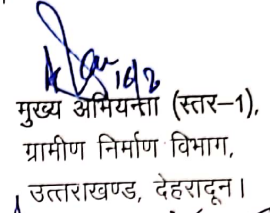 16/2
मुख्य अभियन्ता (स्तर-1),
ग्रामीण निर्माण विभाग,
उत्तराखण्ड, देहरादून।